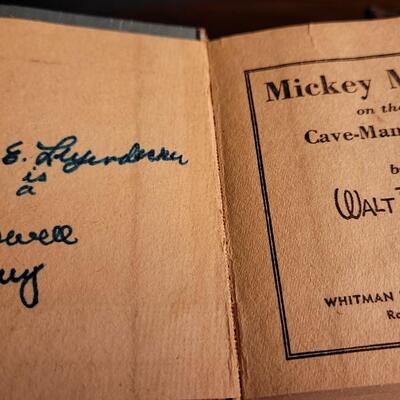 E. Leyendecker
is
a
Mickey M
on the
Cave-Man
b
WALT
WHITMAN